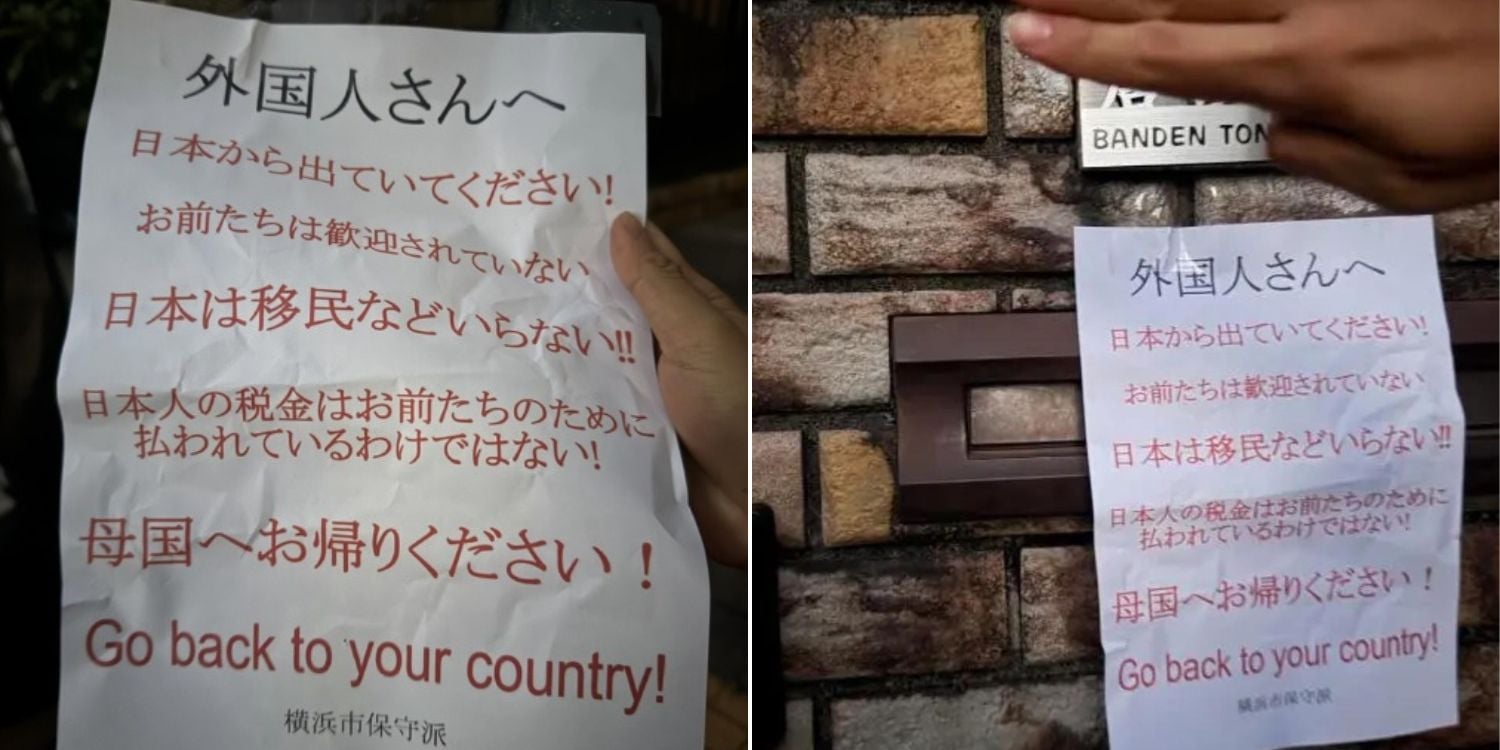 外国人さんへ
日本から出ていてください!
お前たちは歓迎されていない
日本は移民などいらない!!
日本人の税金はお前たちのために
払われているわけではない!
母国へお帰りください！
Go back to your country!
横浜市保守派
BANDEN TON
外国人さんへ
日本から出ていてください!
お前たちは歓迎されていない
日本は移民などいらない!!
日本人の税金はお前たちのために
払われているわけではない!
母国へお帰りください！
Go back to your country!
横浜市保守派